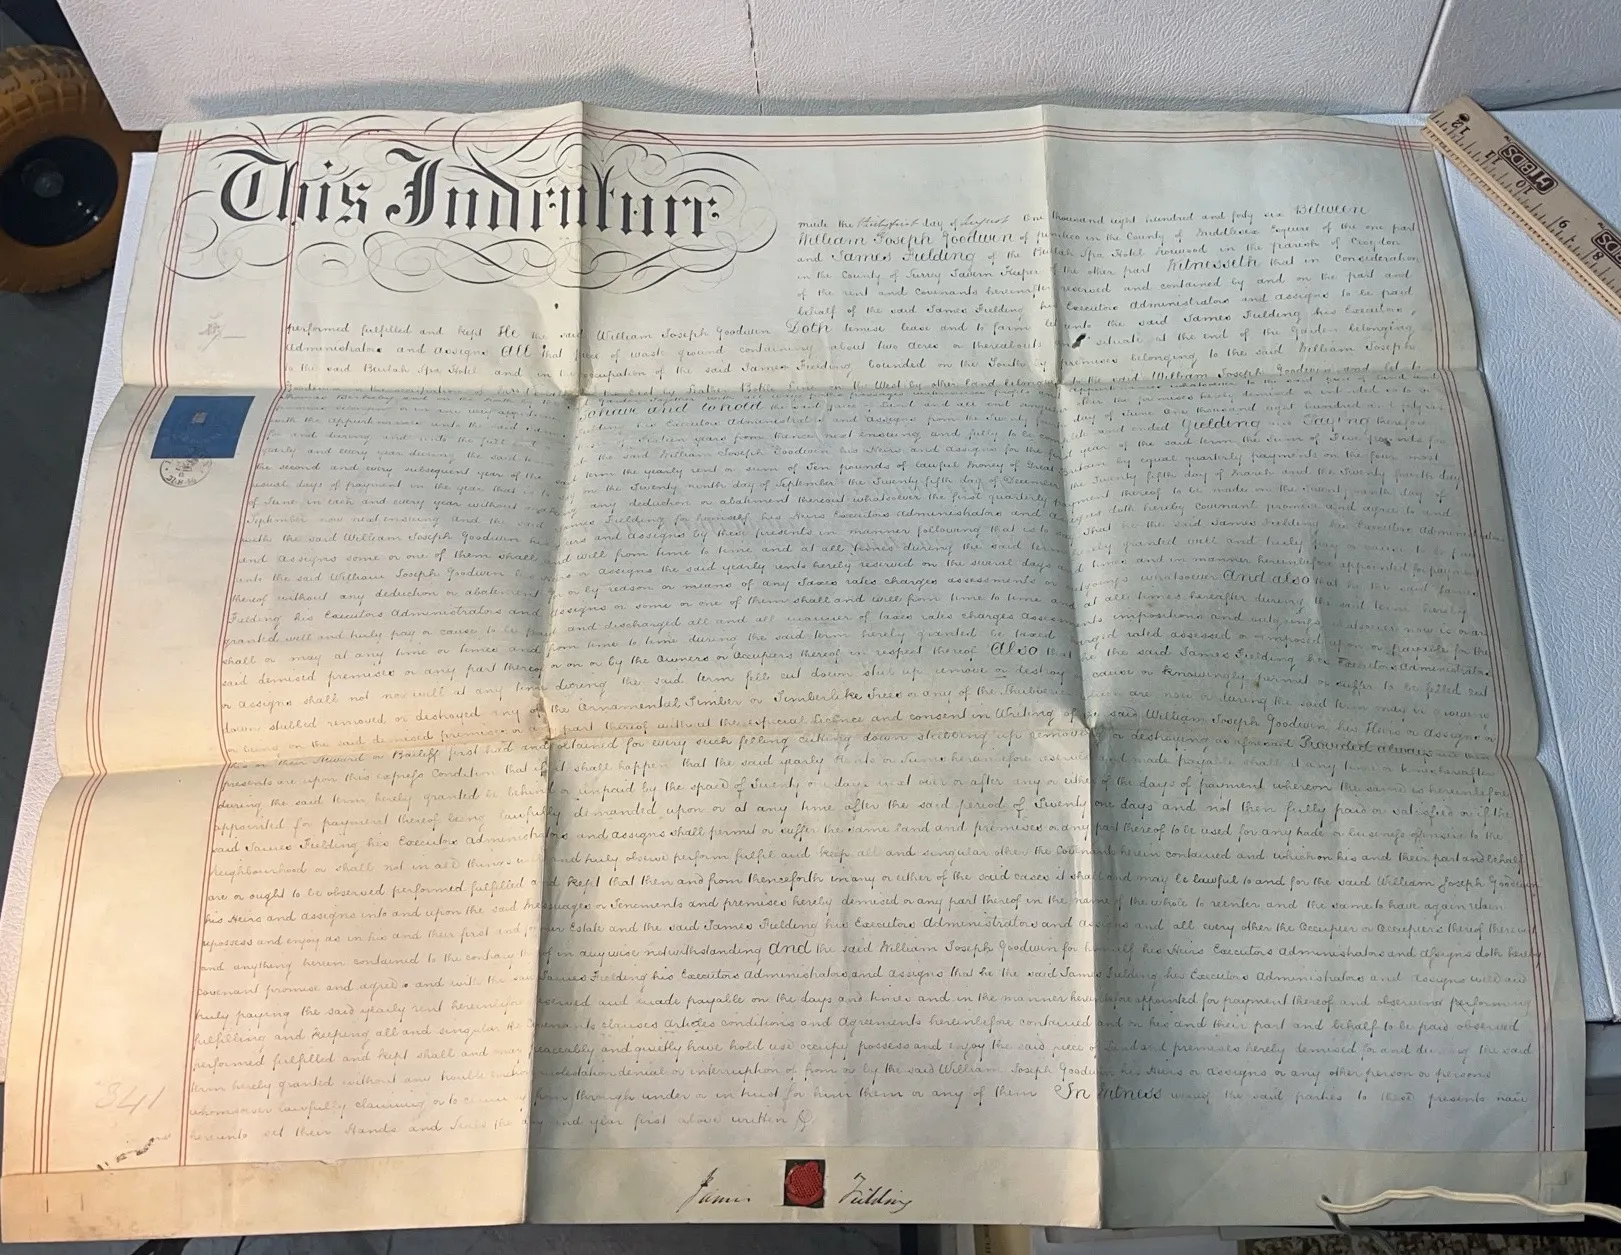 This Indenture
made the thirty first day of August One thousand eight hundred and forty six Between
William Joseph Goodwin of Pimlico in the County of Middlesex Esquire of the one part
and James Fielding of the Beulah Spa Hotel Norwood in the parish of Croydon
in the County of Surry Tavern Keeper of the other part Witnesseth that in Consideration
of the rent and Covenants hereinafter reserved and contained by and on the part and
behalf of the said James Fielding his Executors Administrators and assigns to be paid
performed fulfilled and kept He the said William Joseph Goodwin Doth demise lease and to farm let unto the said James Fielding his Executors,
Administrators and assigns All that piece of waste ground containing about two acres or thereabouts and situate at the end of the Garden belonging
to the said Beulah Spa Hotel and in the occupation of the said James Fielding bounded on the South by premises belonging to the said William Joseph
Goodwin in the West by other land
To have and to hold the said piece of Land
with the appurtenances unto the said James Fielding his Executors Administrators and assigns from the day of June One thousand eight hundred and forty six
for and during and unto the full term of Sixteen years from thence next ensuing and fully to be complete and ended Yielding and Paying therefore
yearly and every year during the said term to the said William Joseph Goodwin his Heirs and assigns for the first year of the said term the sum of Five pounds for
the second and every subsequent year of the said term the yearly rent or sum of Ten pounds of lawful Money of Great Britain by equal quarterly payments on the four most
usual days of payment in the year that is to say on the Twenty ninth day of September the Twenty fifth day of December the Twenty fifth day of March and the Twenty fourth day
of June in each and every year without any deduction or abatement thereout whatsoever the first quarterly payment thereof to be made on the Twenty ninth day of
September now next ensuing and the said James Fielding for himself his Heirs Executors Administrators and assigns doth hereby Covenant promise and agree to and
with the said William Joseph Goodwin his Heirs and assigns by these presents in manner following that is to say That he the said James Fielding his Executors Administrators
and assigns some or one of them shall and will from time to time and at all times during the said term hereby granted well and truly pay or cause to be paid
unto the said William Joseph Goodwin his Heirs or assigns the said yearly rents hereby reserved on the several days and times and in manner hereinbefore appointed for payment
thereof without any deduction or abatement for or by reason or means of any Taxes rates charges assessments or whatsoever And also that he the said James
Fielding his Executors Administrators and assigns or some or one of them shall and will from time to time and at all times hereafter during the said term hereby
granted well and truly pay or cause to be paid and discharged all and all manner of taxes rates charges Assessments impositions and outgoings whatsoever now is or are
shall or may at any time or times and from time to time during the said term hereby granted be taxed charged rated assessed or imposed upon or payable for the
said demised premises or any part thereof or on or by the Owners or Occupiers thereof in respect thereof Also that he the said James Fielding his Executors Administrators
or assigns shall not nor will at any time during the said term fell cut down stub up remove or destroy cause or knowingly permit or suffer to be felled cut
down stubbed removed or destroyed any of the Ornamental Timber or Timberlike Trees or any of the Shrubs which are now or during the said term may be growing
or being on the said demised premises or any part thereof without the special Licence and consent in Writing of the said William Joseph Goodwin his Heirs or Assigns or
his or their Steward or Bailiff first had and obtained for every such felling cutting down stubbing up removing or destroying as aforesaid Provided always and these
presents are upon this express Condition that if it shall happen that the said yearly Rents or Sums hereinbefore reserved and made payable shall at any time or times hereafter
during the said term hereby granted be behind or unpaid by the space of Twenty one days next over or after any or either of the days of payment whereon the same is hereinbefore
appointed for payment thereof being lawfully demanded upon or at any time after the said period of Twenty one days and not then fully paid or satisfied or if the
said James Fielding his Executors Administrators and assigns shall permit or suffer the same land and premises or any part thereof to be used for any trade or business offensive to the
neighbourhood or shall not in all things well and truly observe perform fulfil and keep all and singular other the Covenants herein contained and which on his and their part and behalf
are or ought to be observed performed fulfilled and kept that then and from thenceforth in any or either of the said cases it shall and may be lawful to and for the said William Joseph Goodwin
his Heirs and assigns into and upon the said Messuages or Tenements and premises hereby demised or any part thereof in the name of the whole to reenter and the same to have again retain
repossess and enjoy as in his and their first and former Estate and the said James Fielding his Executors Administrators and assigns and all every other the Occupier or Occupiers thereof thereout
and anything herein contained to the contrary thereof in anywise notwithstanding And the said William Joseph Goodwin for himself his Heirs Executors Administrators and Assigns doth hereby
covenant promise and agree and with the said James Fielding his Executors Administrators and assigns that he the said James Fielding his Executors Administrators and Assigns well and
truly paying the said yearly rent hereinbefore reserved and made payable on the days and times and in the manner hereinbefore appointed for payment thereof and observing performing
fulfilling and keeping all and singular the Covenants clauses articles conditions and Agreements hereinbefore contained and on his and their part and behalf to be paid observed
performed fulfilled and kept shall and may peaceably and quietly have hold use occupy possess and enjoy the said piece of Land and premises hereby demised for and during the said
term hereby granted without any trouble molestation denial or interruption of from or by the said William Joseph Goodwin his Heirs or assigns or any other person or persons
whomsoever lawfully claiming or to claim by from through under or in trust for him them or any of them In Witness whereof the said parties to these presents have
hereunto set their Hands and Seals the day and year first above written
341
James Fielding
12
11
10
9
8